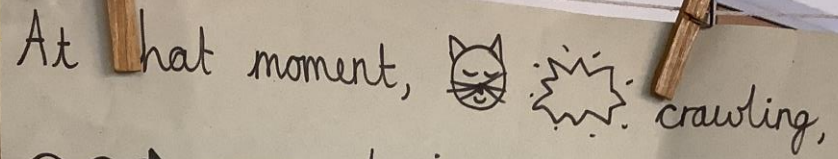 At that moment, crawling,